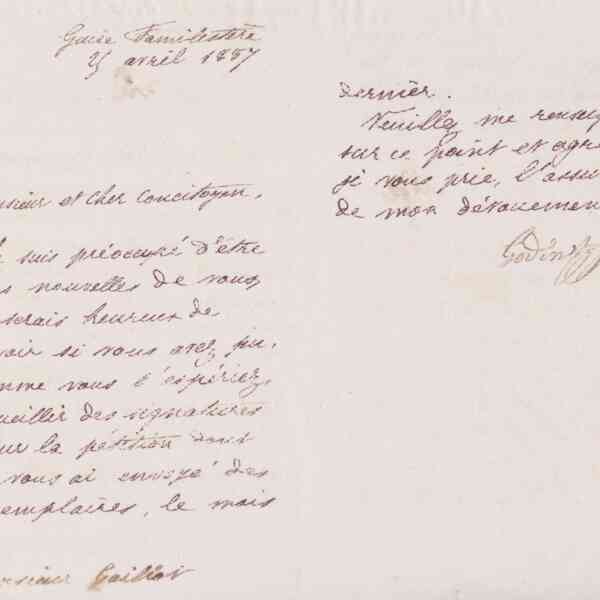 Guise Familistère
25 avril 1887
nsieur et cher concitoyen,
suis préoccupé d'être
s nouvelles de vous
serais heureux de
oir si vous avez pu,
mme vous l'espériez,
ueillir des signatures
ur la pétition dont
vous ai envoyé des
emplaires, le mois
nsieur
dernier.
Veuillez me renseig
sur ce point et agré
je vous prie, l'assu
de mon dévouemen
Godin